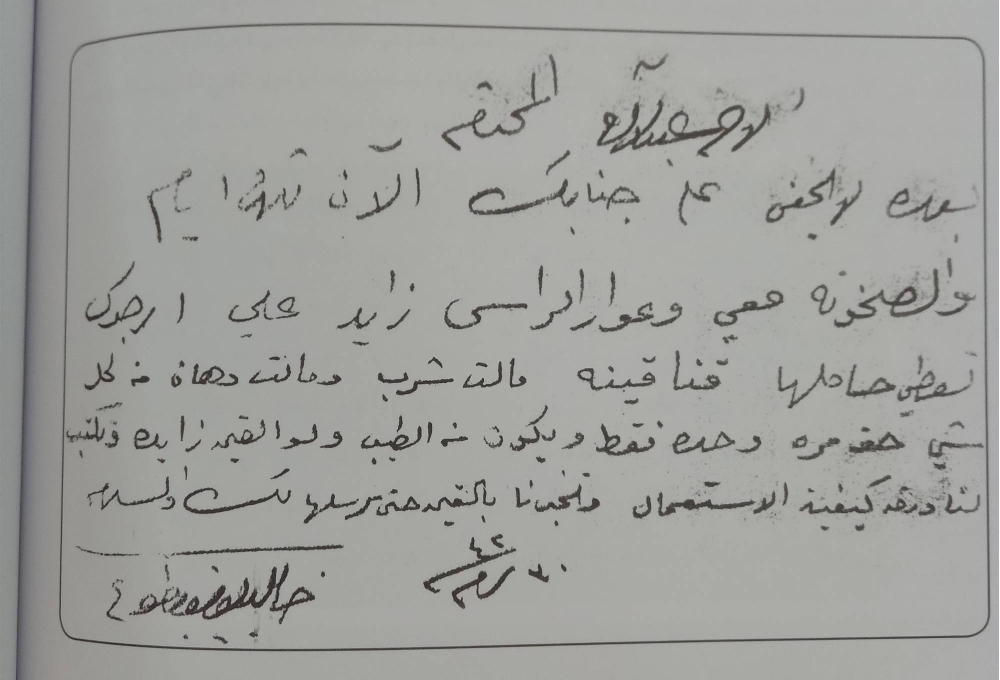 الاخ عبدالله المحترم
بعده لا يخفى على جنابك الآن ثلاثة ايام
والصخونه معي وعوار الراس زايد علي ارجوك
تعطي حاملها قناقينه مالت شرب ومالت دهان من كل
شي حق مره وحده فقط ويكون من الطيب ولو القيمه زايده وتكتب
لنا ورقه كيفية الاستعمال وتخبرنا بالقيمه حتى نرسلها لك والسلام
٤٢
٣٠